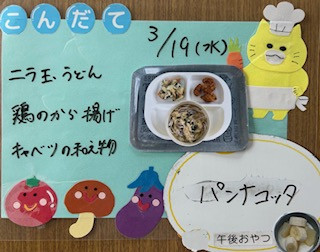 こんだて
3/19(水)
ニラ玉うどん
鶏のから揚げ
キャベツの和え物
パンナコッタ
午後おやつ